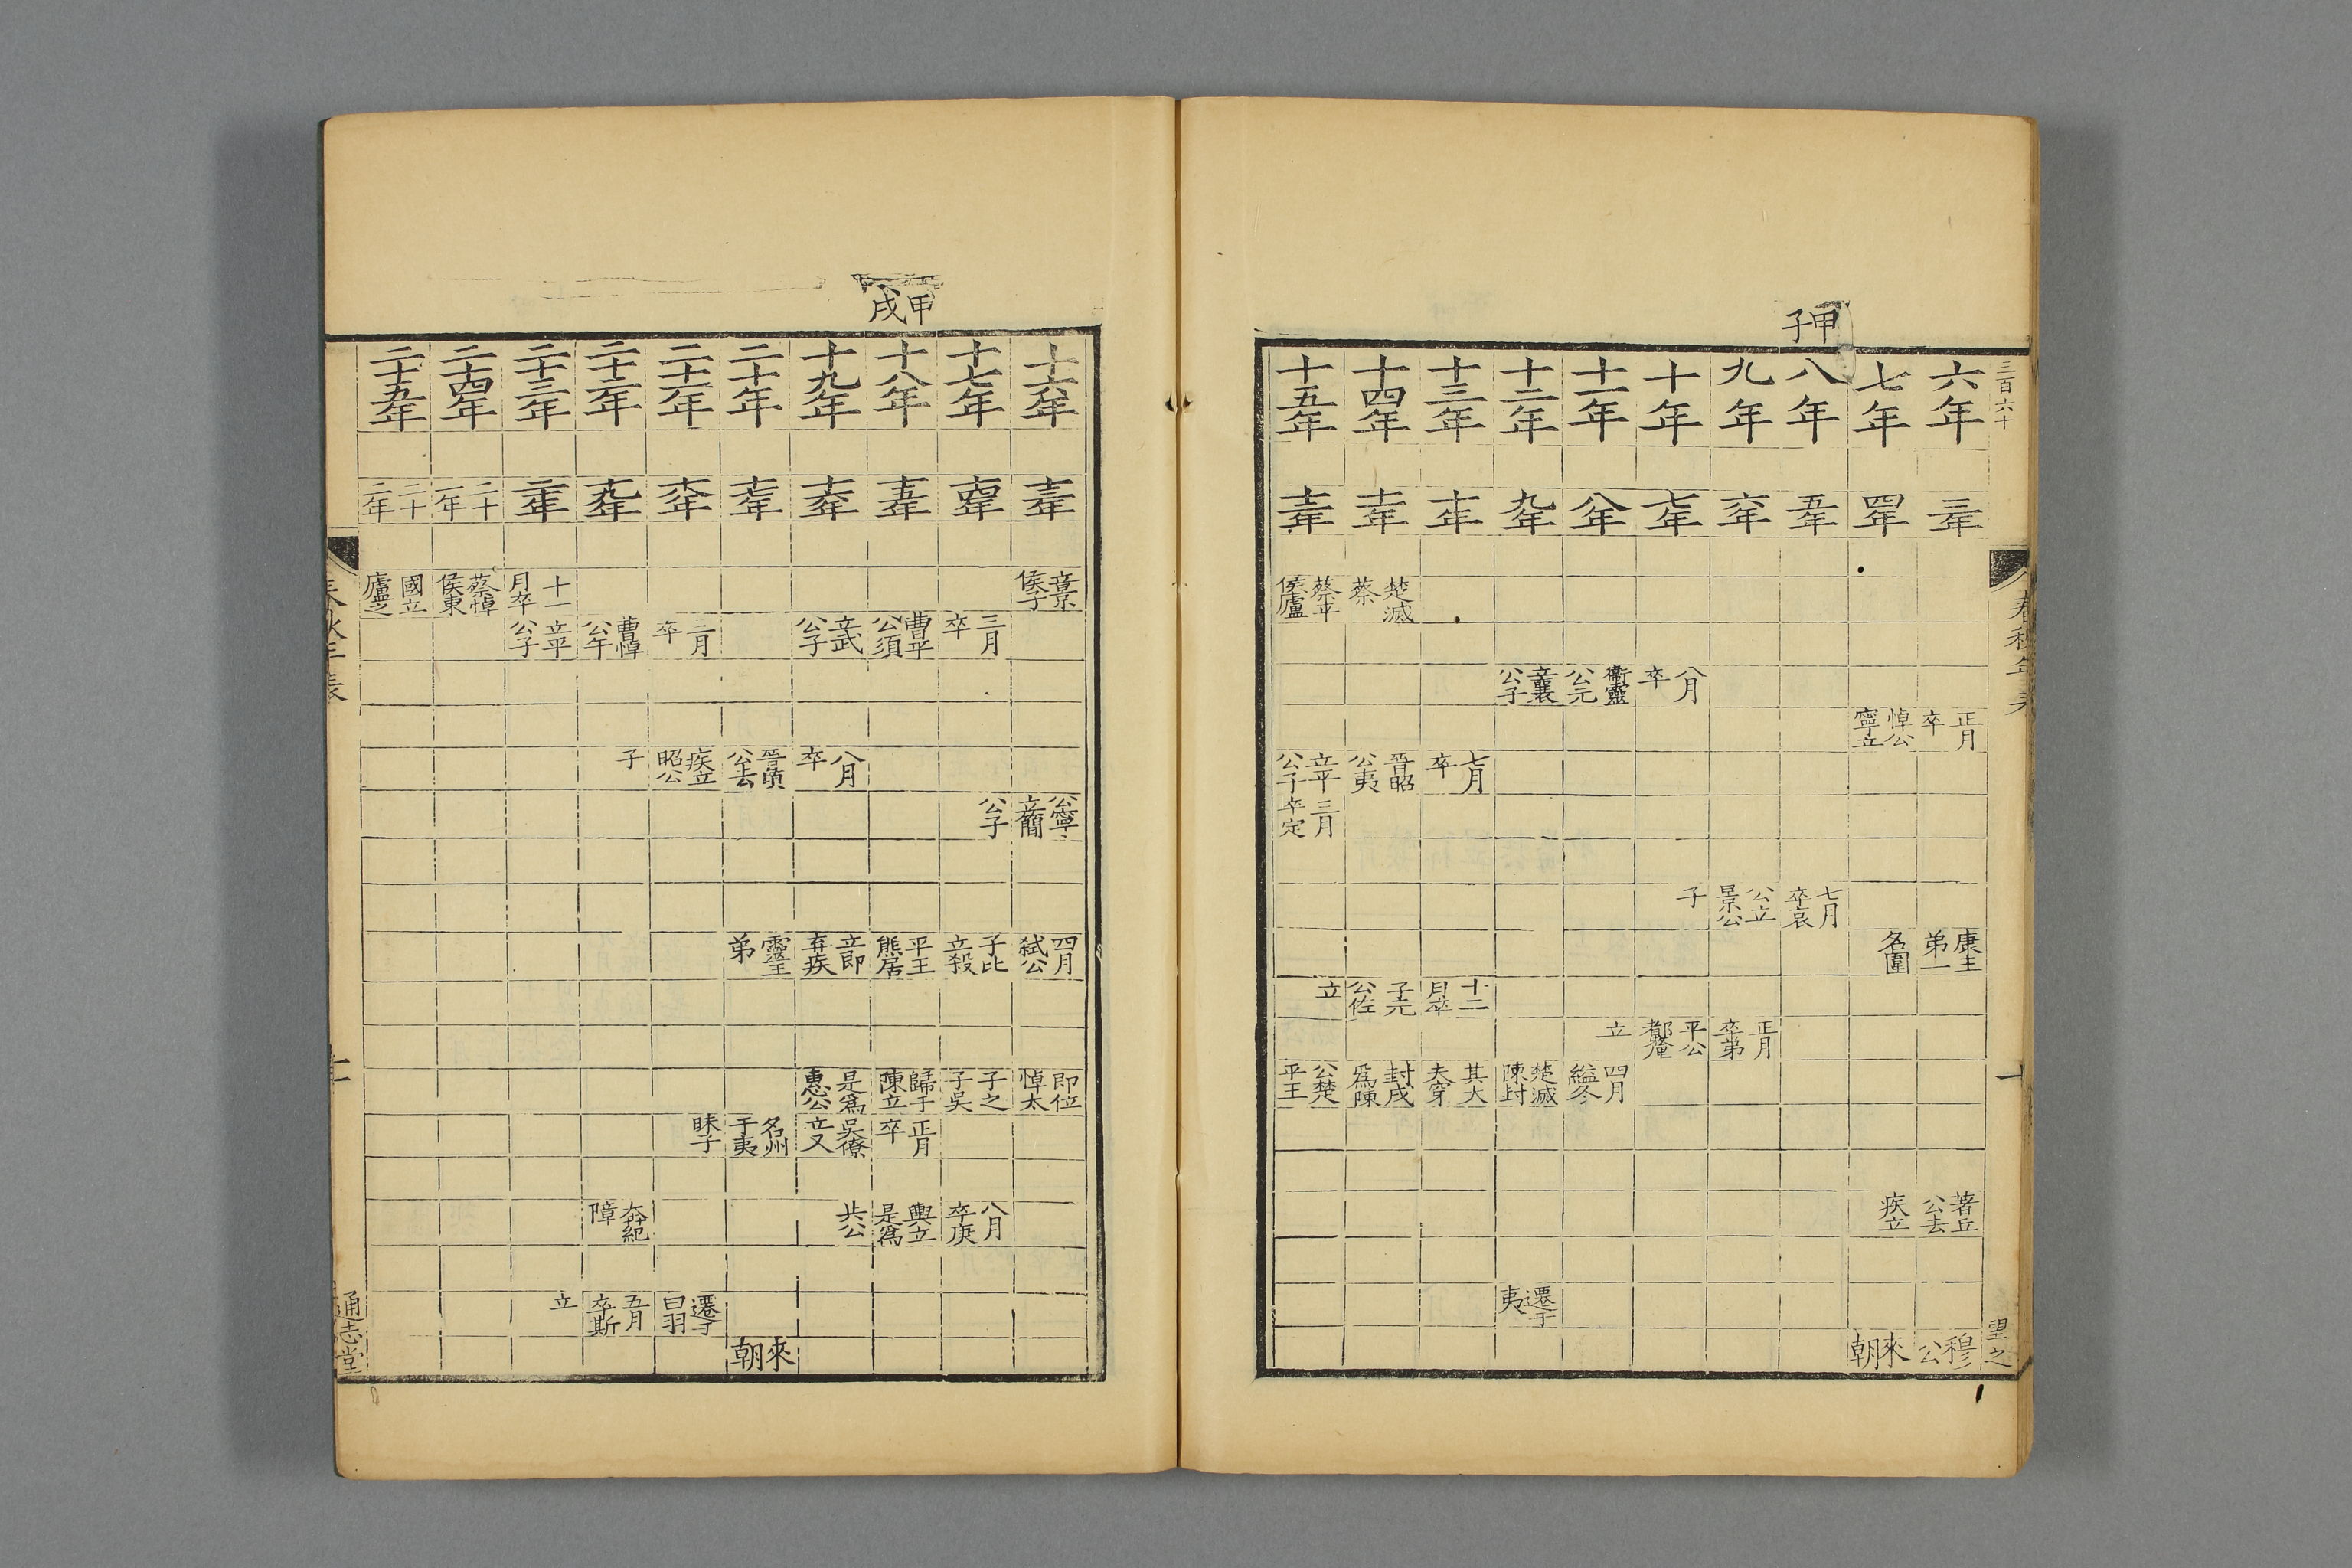 甲子
三百六十
六年
七年
八年
九年
十年
十一年
十二年
十三年
十四年
十五年
三年
四年
五年
六年
七年
八年
九年
十年
十一年
十二年
楚滅蔡
蔡平侯廬
八月卒
衛靈公元
立襄公子
正月卒
悼公寧立
七月卒
晉昭公夷
立平公子
三月卒定
七月卒哀
公立景公
子
康王弟一
名圍
十二月卒
子元公佐
立
正月卒弟
平公郁釐
立
四月縊冬
楚滅陳封
其大夫穿
封戌爲陳
公楚平王
著丘公去
疾立
遷于夷
穆公
來朝
望之
春秋年表
十
甲戌
十六年
十七年
十八年
十九年
二十年
二十一年
二十二年
二十三年
二十四年
二十五年
十三年
十四年
十五年
十六年
十七年
十八年
十九年
二十年
二十一年
二十二年
立景侯子
十一月卒
蔡悼侯東
國立廬之
三月卒
曹平公須
立武公子
三月卒
曹悼公午
立平公子
八月卒
晉頃公去
疾立昭公
子
公寧立簡
公子
四月弑公
子比立殺
平王熊居
立即弃疾
靈王弟
即位悼太
子之子吳
歸于陳立
是爲惠公
正月卒
吳僚立又
名州于夷
眛子
八月卒庚
輿立是爲
共公
奔紀障
遷于白羽
五月卒斯
立
來朝
春秋年表
十一
通志堂